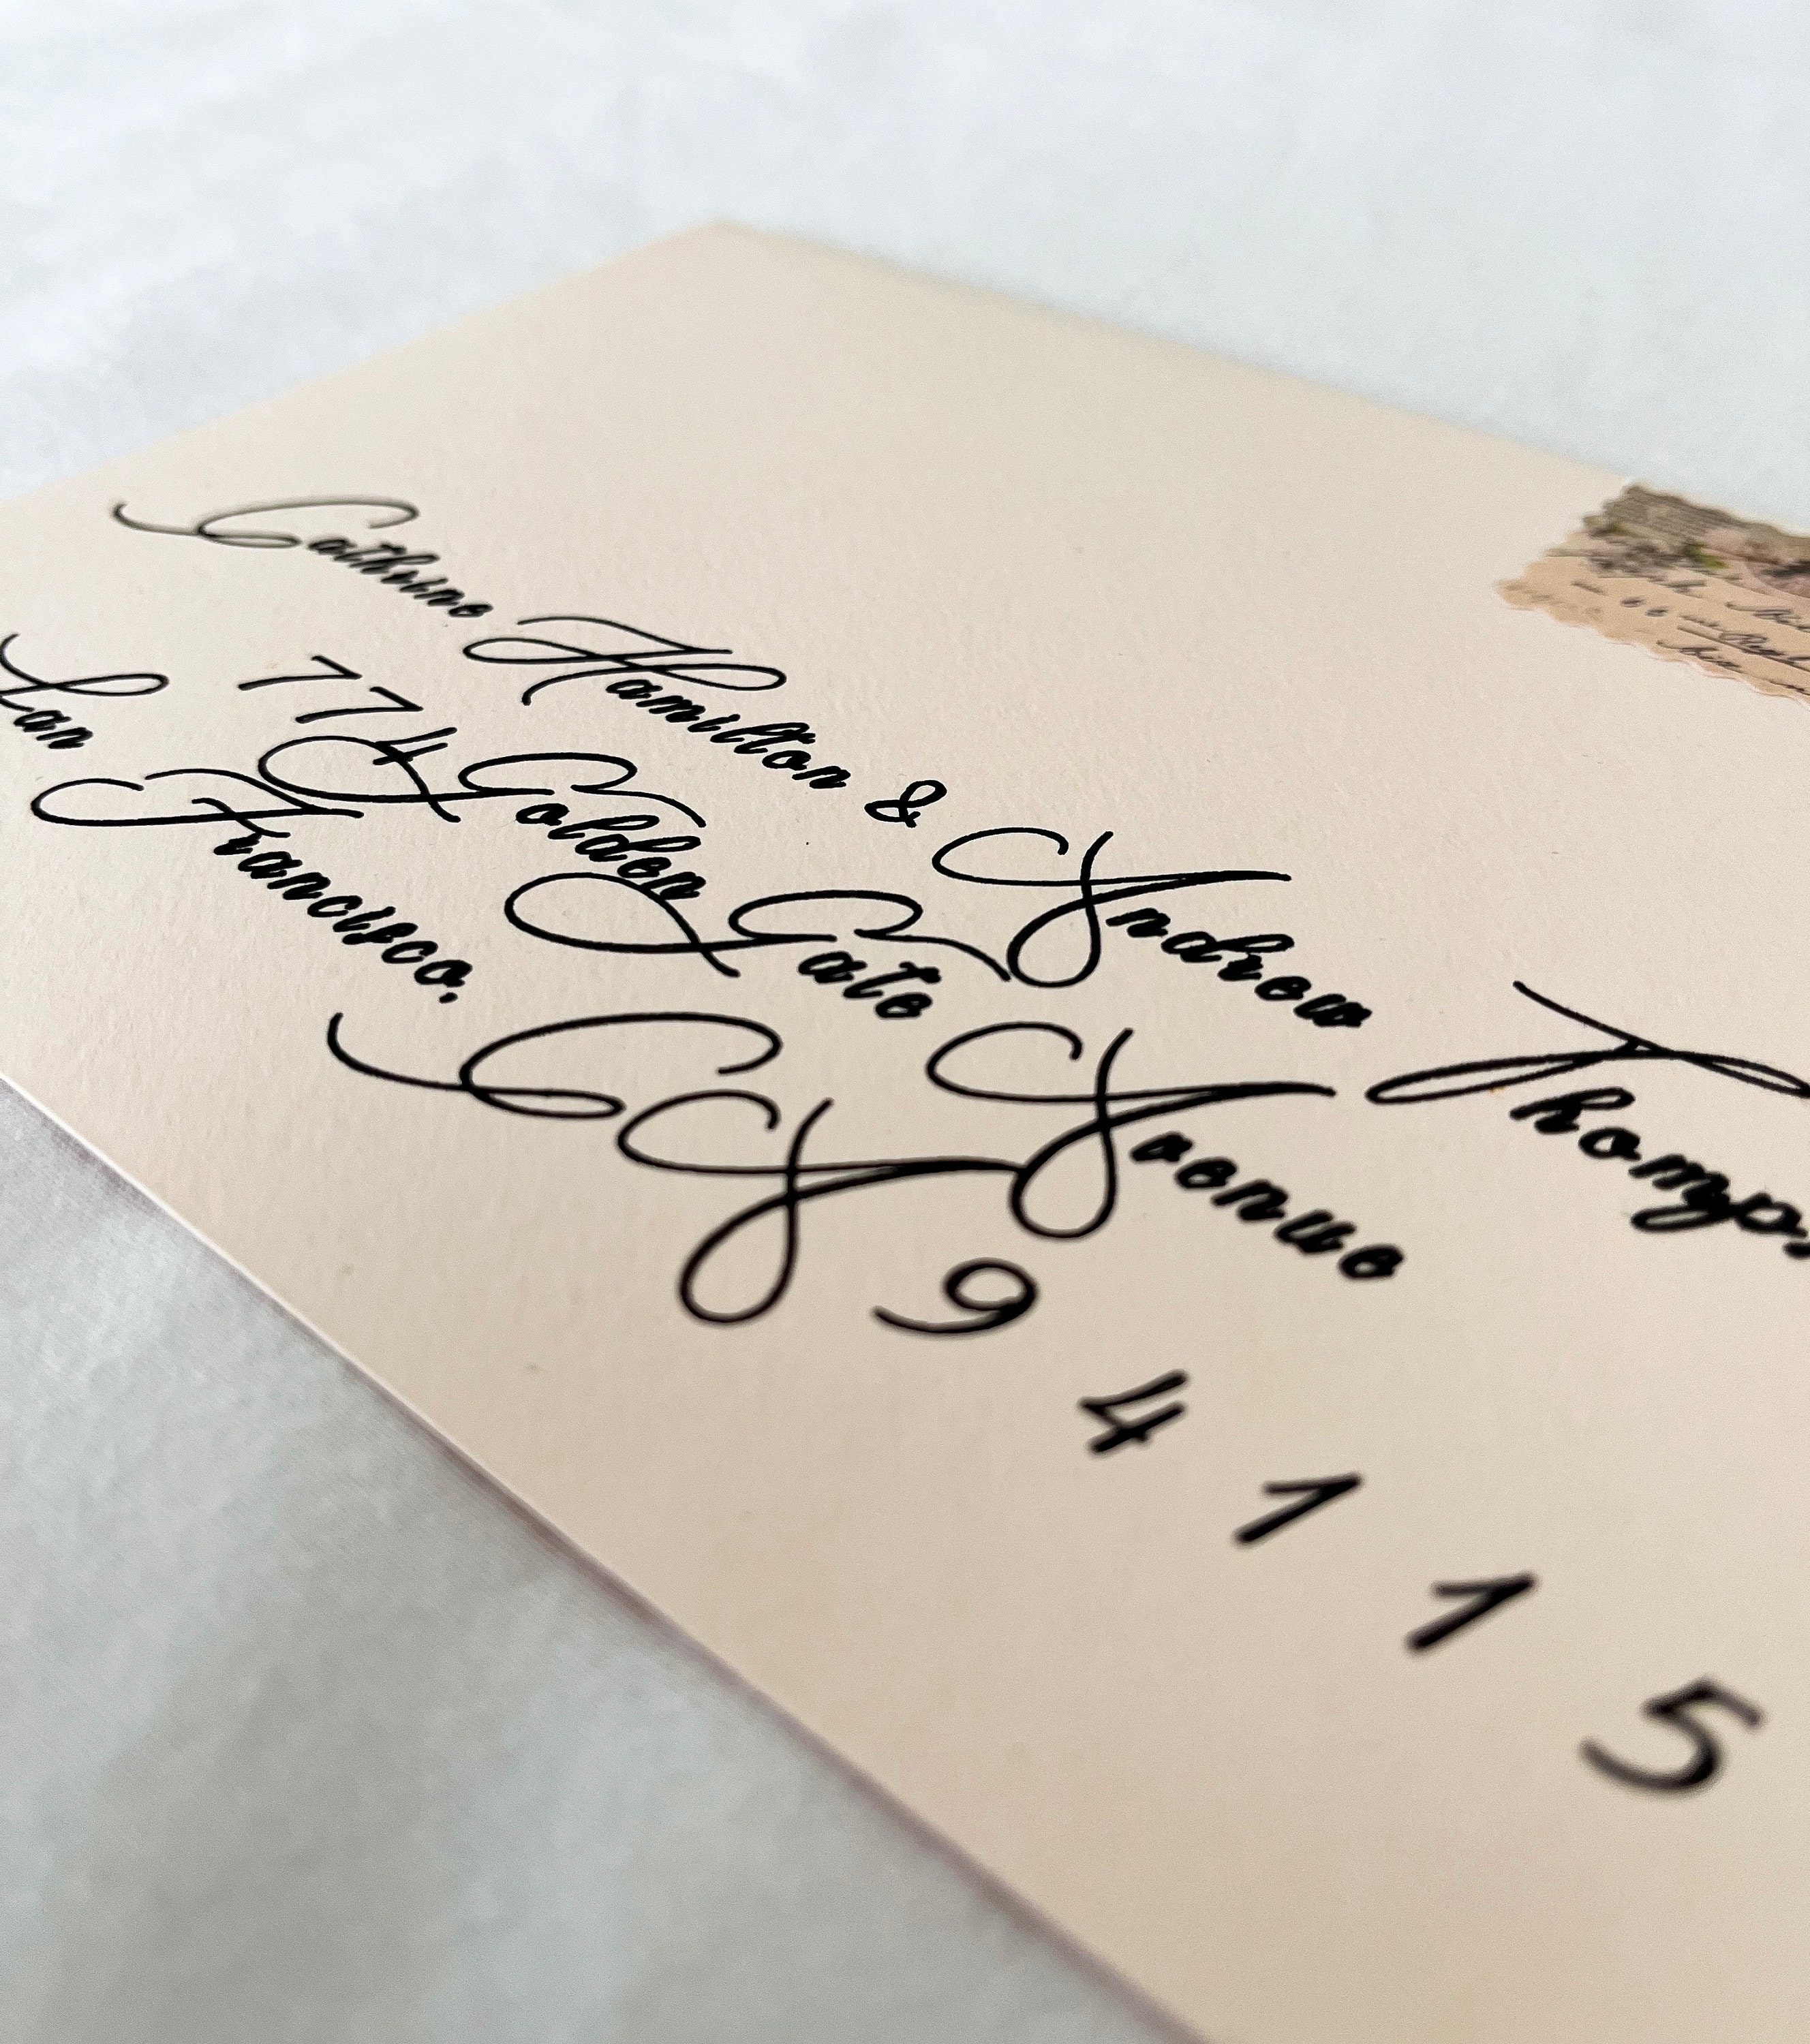 Catherine Hamilton & Andrew Thomps
774 Golden Gate Avenue
San Francisco,
CA 94115